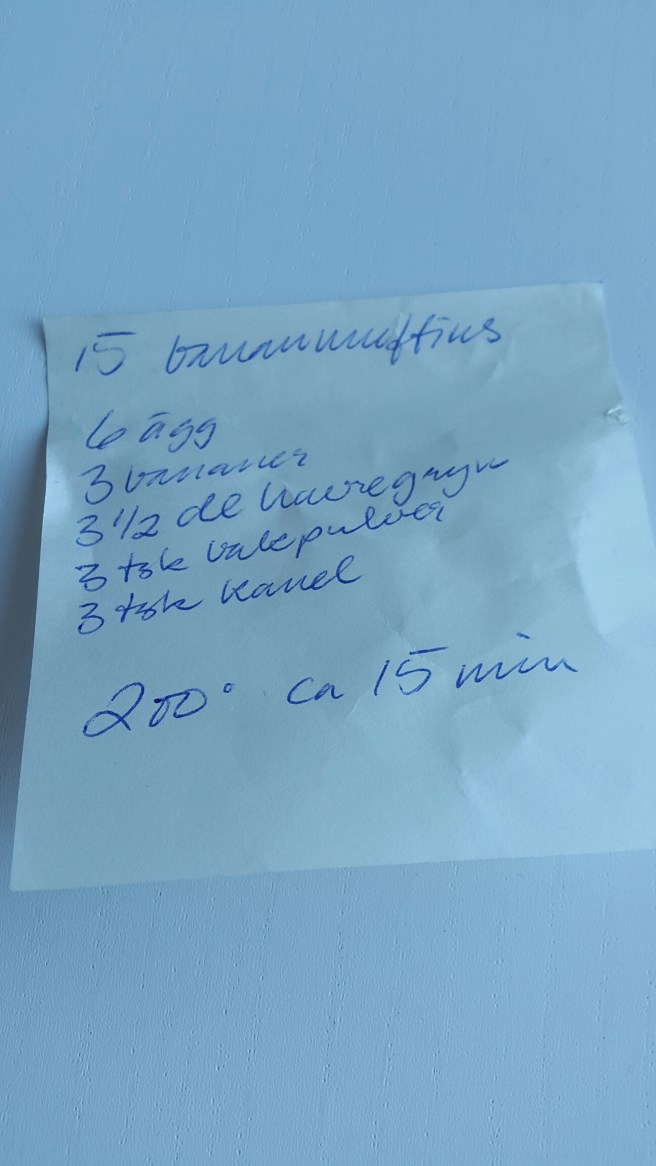 15 bananmuffins
6 ägg
3 bananer
3 1/2 dl havregryn
3 tsk bakpulver
3 tsk kanel
200° ca 15 min